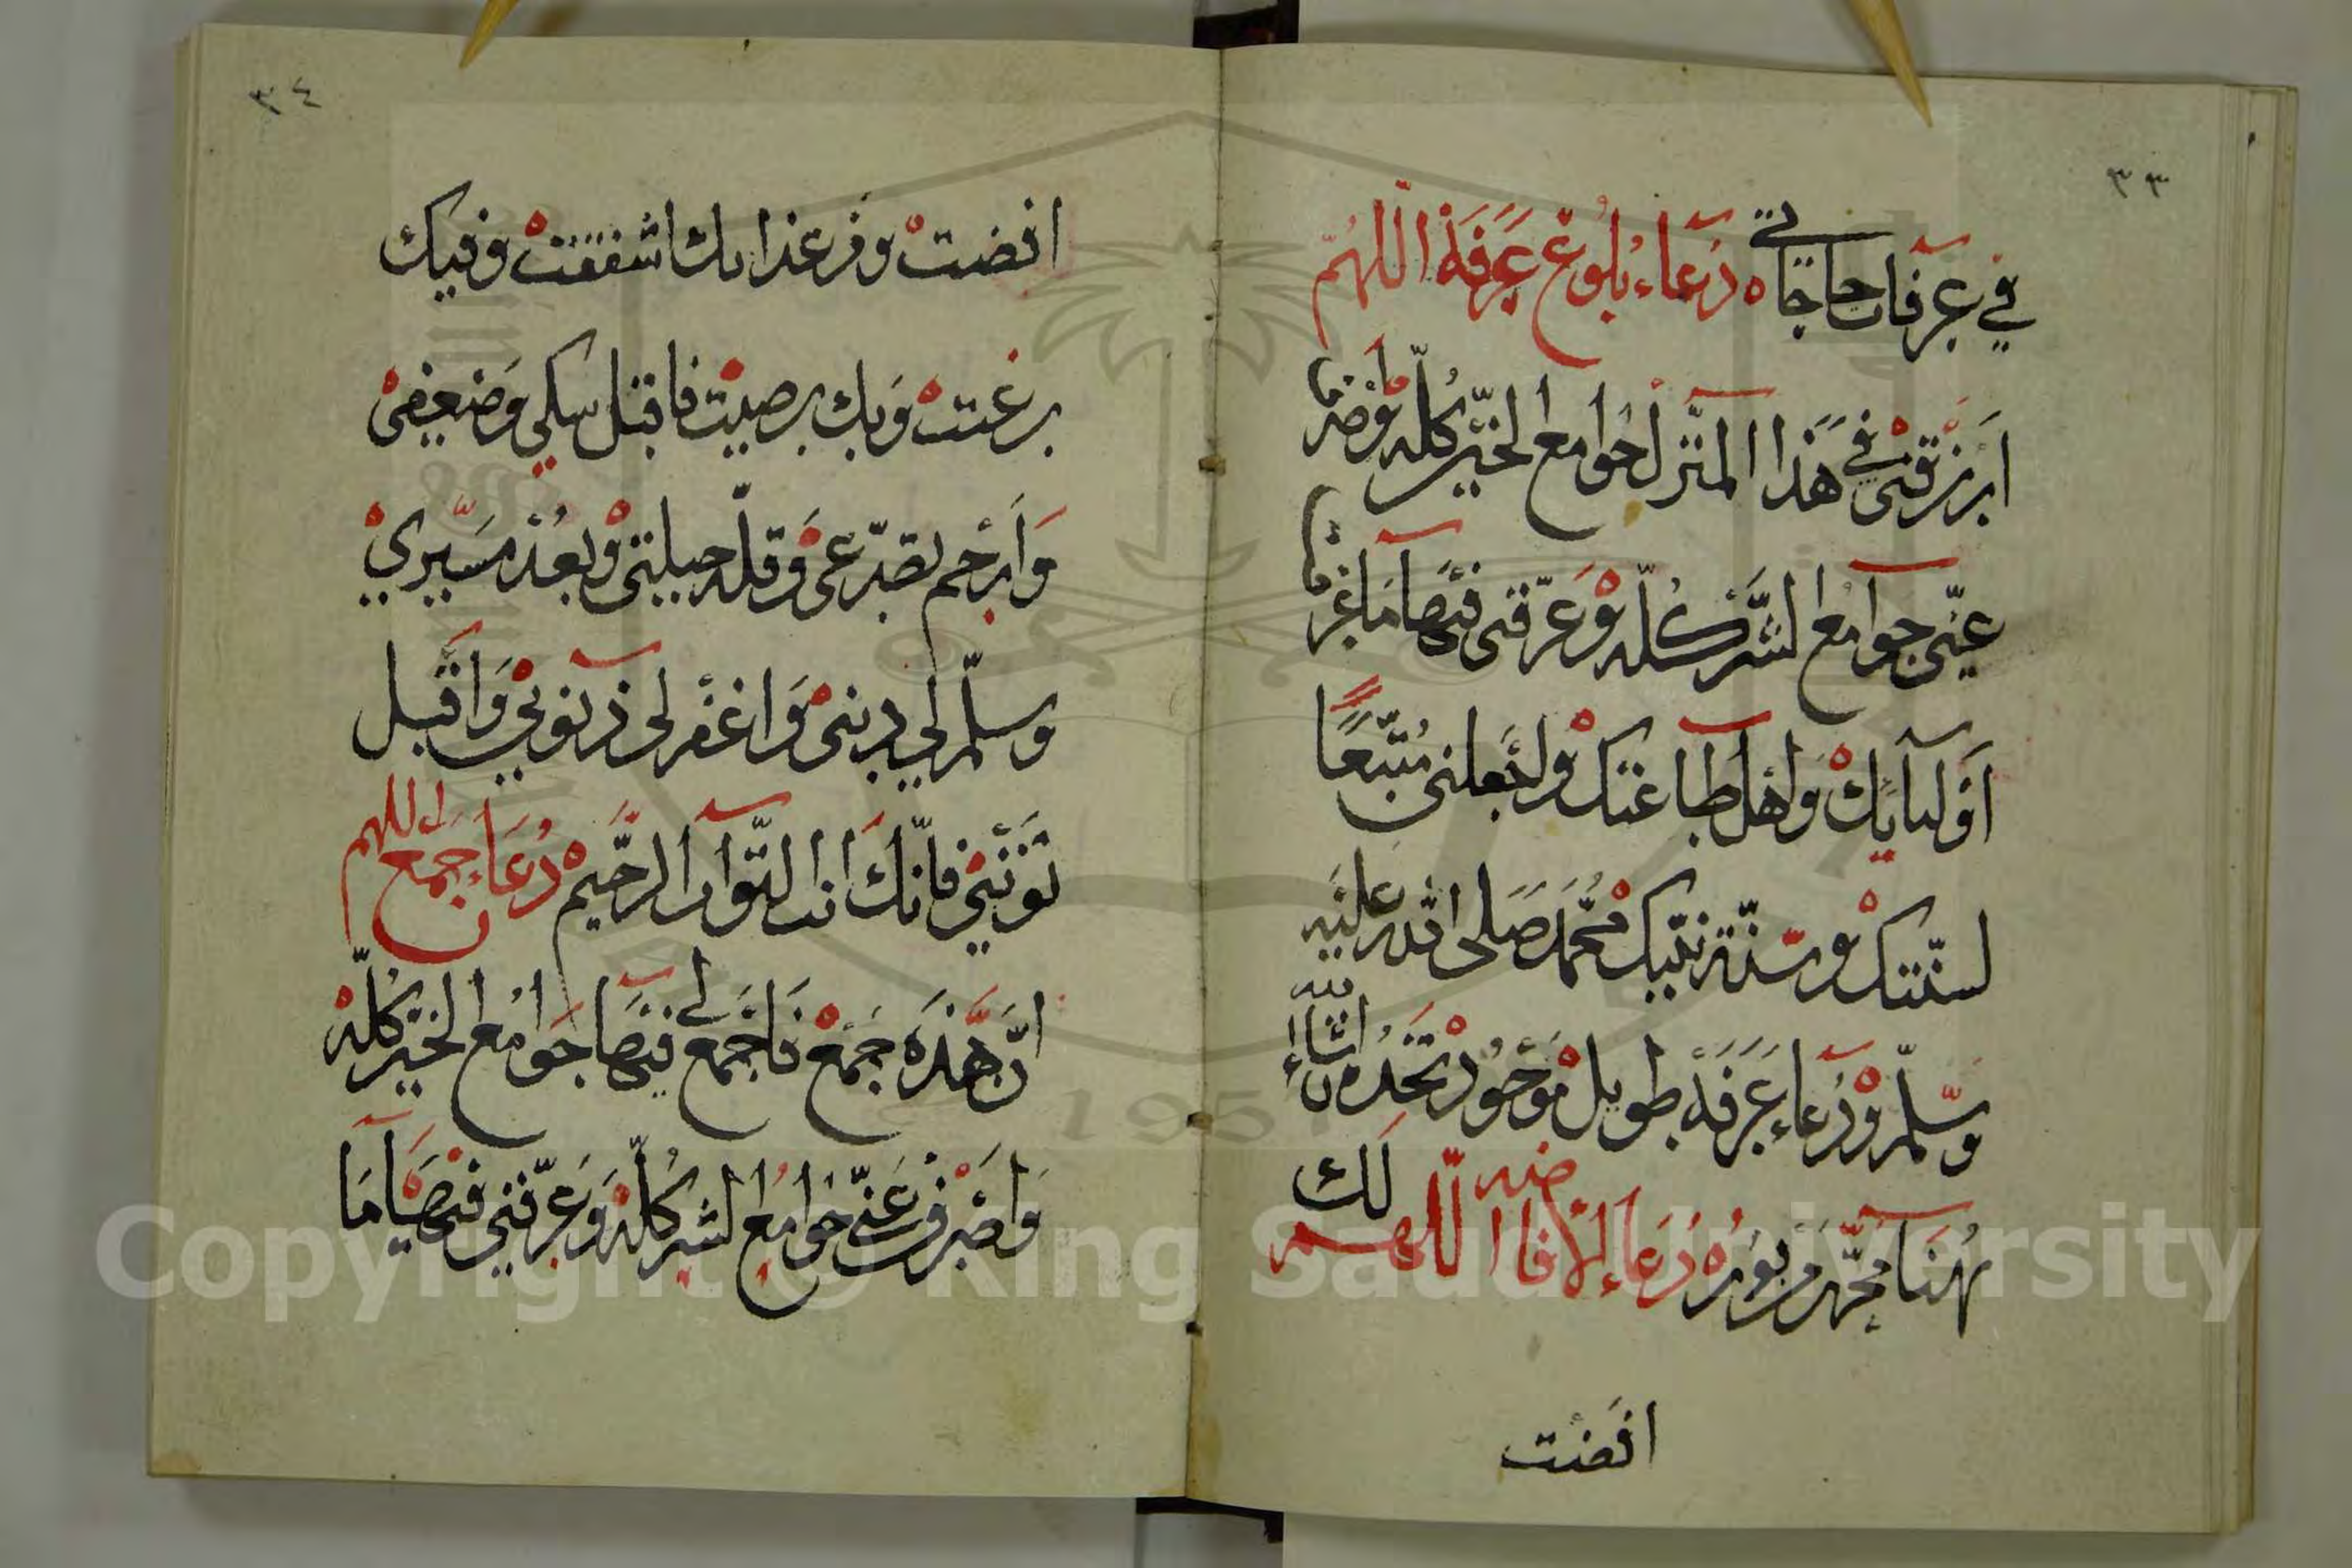 ٣٣
في عرفات حاجاتي ه دُعاء بُلُوغ عَرَفَة اللهُمّ
ارزقني في هذا المنزل جوامع الخير كلّه واصرف
عنّي جوامع الشّر كلّه وعرّفني فيها ما عرفت
اوليآئك واهل طاعتك واجعلني متّبعًا
لسنّتك وسنّة نبيّك محمّد صلى الله عليه
وسلّم ودعاء عَرَفَة طويل موجود تجده ان شاء الله
هنا محرّر ه دُعاء الافاضه اللّهم لك
افضت
٣٤
افضت ومن عذابك اشفقت وفيك
رغبت وبك رضيت فاقبل نسكي وضعفي
وارحم تضرّعي وقلّة حيلتي وبعد مسيري
وسلّم لي ديني واغفر لي ذنوبي واقبل
توبتي فانّك انت التّواب الرّحيم ه دُعاء جمع اللهم
انّ هذه جَمْع فاجمع لي فيها جوامع الخير كلّه
واصرف عنّي جوامع الشر كلّه وعرّفني فيها ما
Copyright © King Saud University
1957